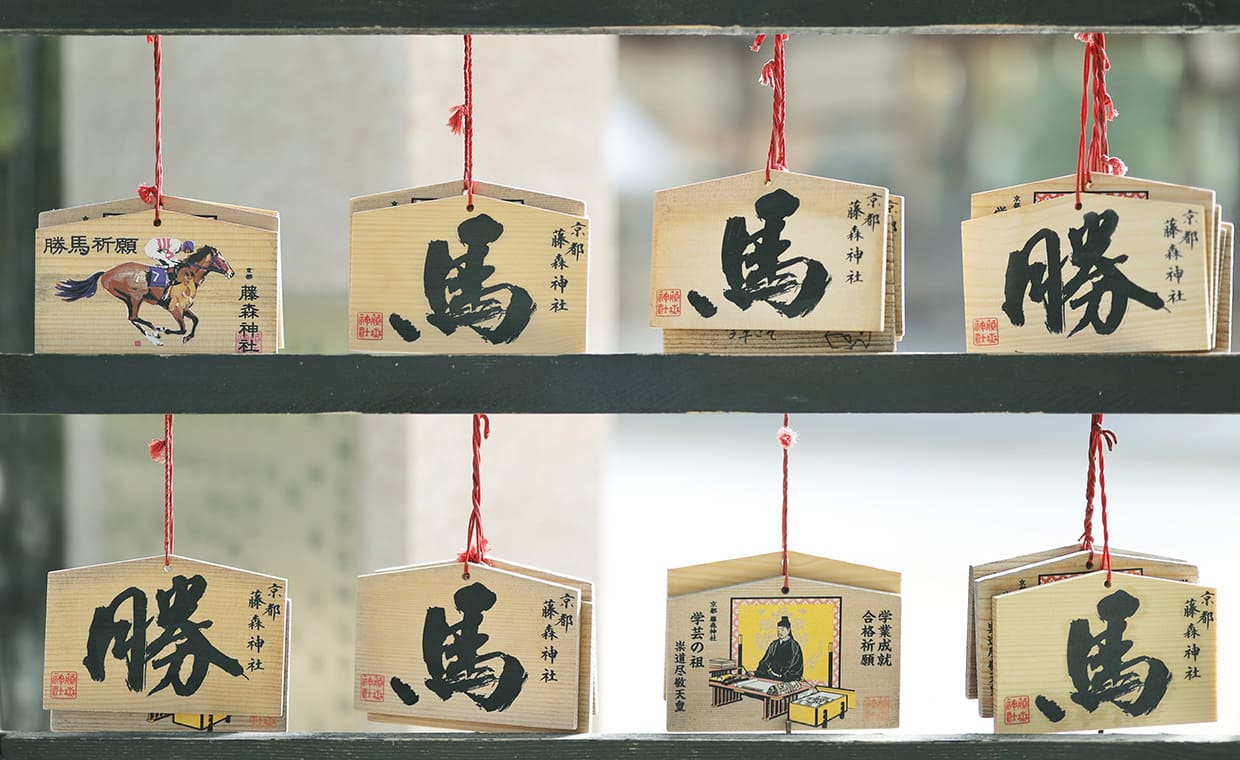 勝馬祈願
京都
藤森神社
馬
京都
藤森神社
馬
京都
藤森神社
勝
京都
藤森神社
勝
京都
藤森神社
馬
京都
藤森神社
学業成就
合格祈願
京都 藤森神社
学芸の祖
崇道尽敬天皇
馬
京都
藤森神社